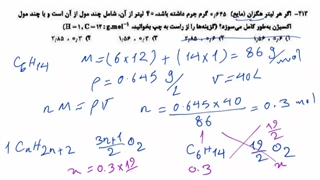 ۲۱۳- اگر هر لیتر هگزان (مایع) ۰٫۶۴۵ گرم جرم داشته باشد، ۴۰ لیتر از آن، شامل چند مول از آن است و با چند مول
اکسیژن به‌طور کامل می‌سوزد؟ (گزینه‌ها را از راست به چپ بخوانید، H=۱, C=۱۲ : g.mol⁻¹)
۱) ۰٫۶ ، ۱٫۵۶ ۲) ۰٫۳ ، ۱٫۵۶ ۳) ۰٫۶ ، ۲٫۸۵ ۴) ۰٫۳ ، ۲٫۸۵
C6H14 M=(6x12)+(14x1)=86 g/mol
ρ=0.645 g/L V=40L
nM=ρV n=0.645x40/86=0.3 mol
1 CnH2n+2 3n+1/2 O2
x=0.3x19/2
1 19/2
C6H14 19/2 O2
0.3 x